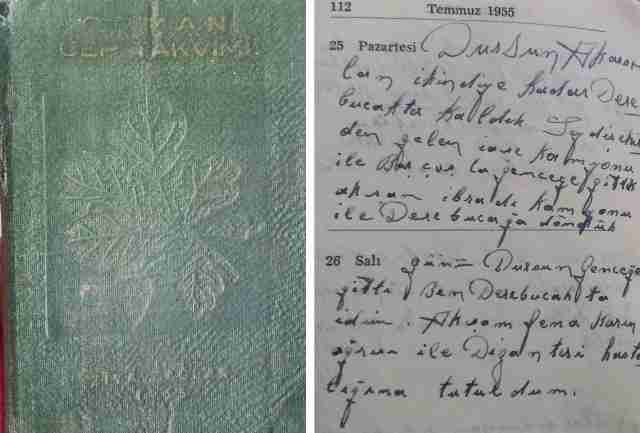 ORMAN
CEP TAKVİMİ
112 Temmuz 1955
25 Pazartesi Dursun Akasar
lan ikindiye kadar Dere
bucakta kaldık.
den gelen iase kamyonu
ile gencege gittik
akşam ibradı kamyonu
ile Derebucağa döndük
26 Salı günü Dursun Gencege
gitti Ben Derebucak ta
idim. Akşam fena karın
ağrısı ile Dizanteri hasta
lığına tutuldum.